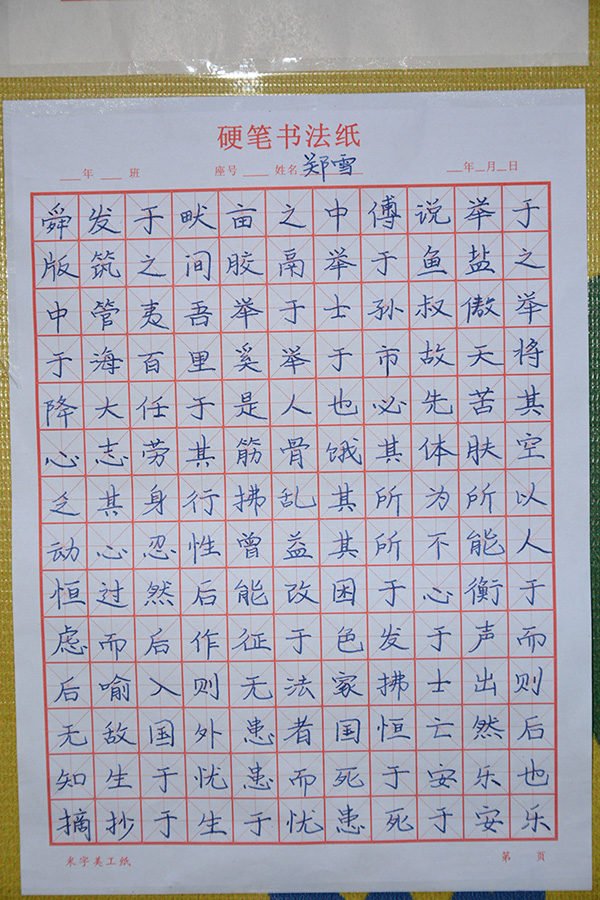 硬笔书法纸
年 班 座号 姓名 郑雪 年 月 日
舜发于畎亩之中傅说举于
版筑之间胶鬲举于鱼盐之
中管夷吾举于士孙叔傲举
于海百里奚举于市故天将
降大任于是人也必先苦其
心志劳其筋骨饿其体肤空
乏其身行拂乱其所为所以
动心忍性曾益其所不能人
恒过然后能改困于心衡于
虑而后作征于色发于声而
后喻入则无法家拂士出则
无敌国外患者国恒亡然后
知生于忧患而死于安乐也
摘抄于生于忧患死于安乐
米字美工纸 第 页